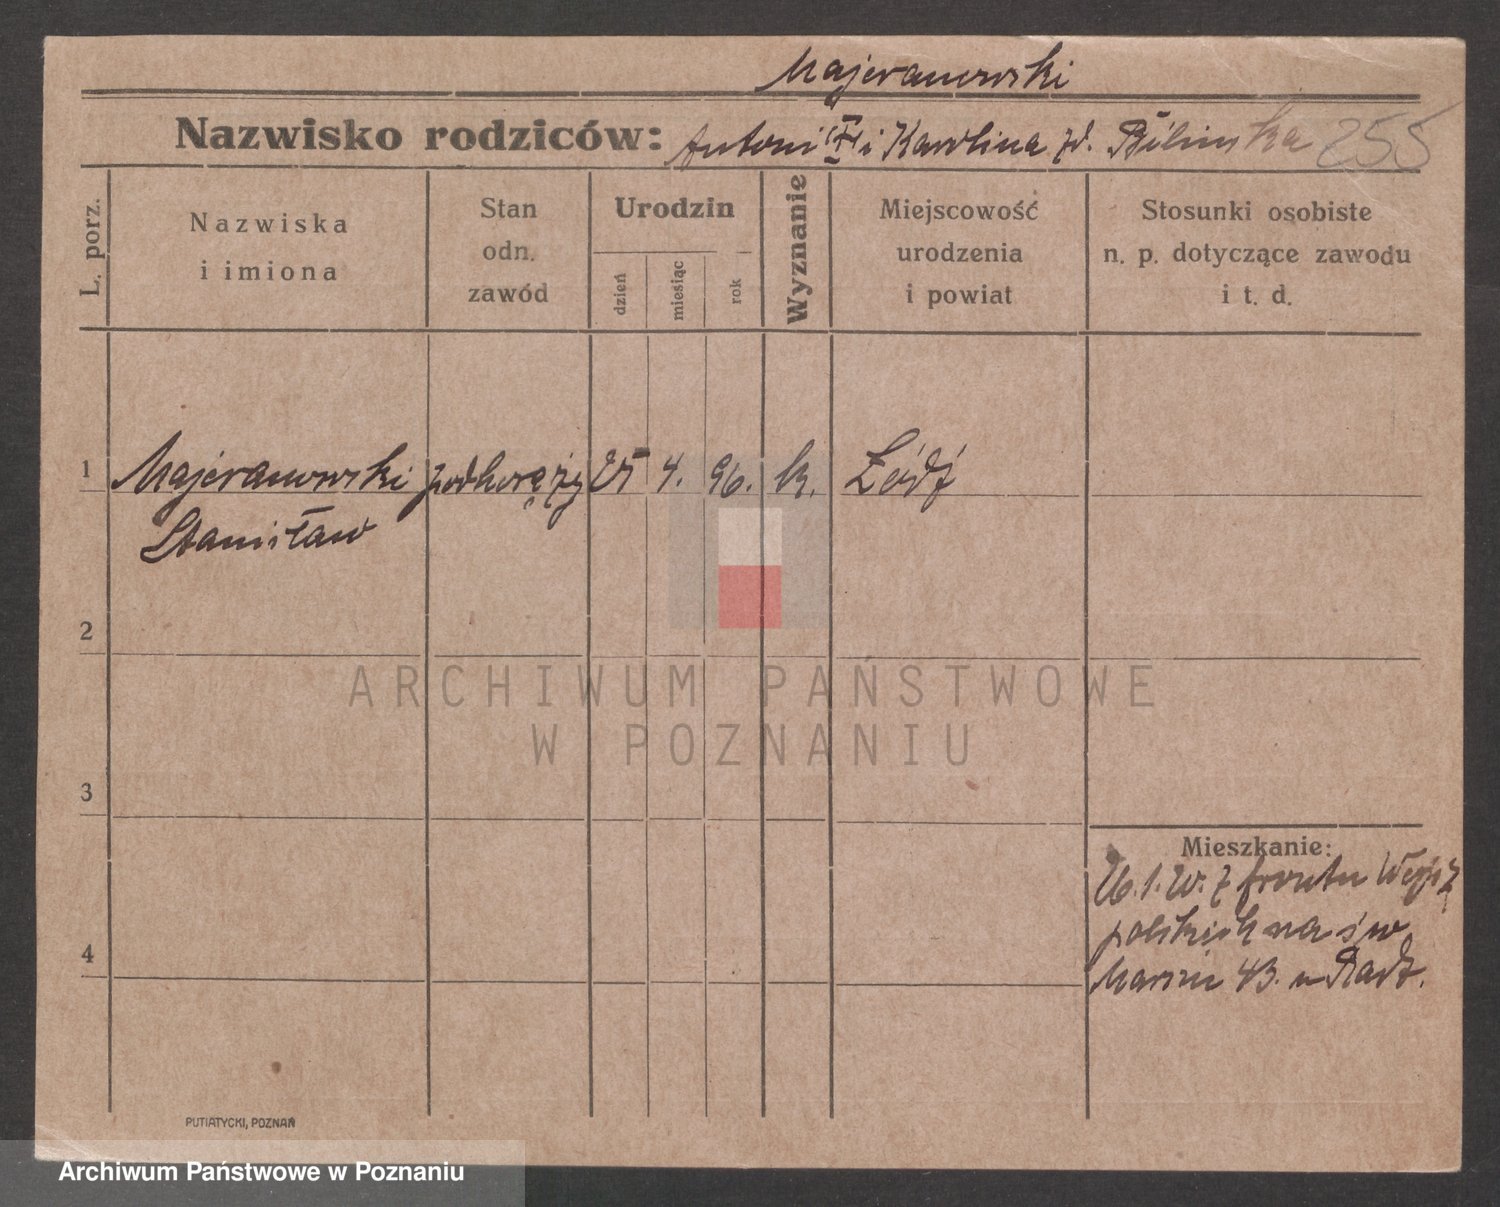 Majeranowski
Nazwisko rodziców: Antoni i Karolina zd. Bilinska 255
L. porz.
Nazwiska
i imiona
Stan
odn.
zawód
Urodzin
dzień
miesiąc
rok
Wyznanie
Miejscowość
urodzenia
i powiat
Stosunki osobiste
n. p. dotyczące zawodu
i t. d.
1 Majeranowski podchorąży 25 4. 96. k. Łódź
Stanisław
2
ARCHIWUM PAŃSTWOWE
W POZNANIU
3
Mieszkanie:
z frontu
polskich na św
4
Marcin 43.
PUTIATYCKI, POZNAŃ
Archiwum Państwowe w Poznaniu